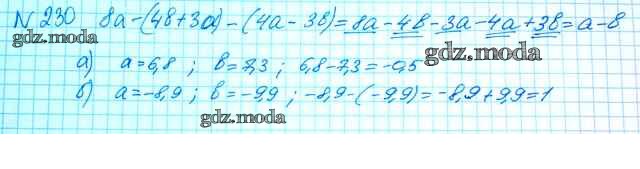 N 230 8a-(4в+3a)-(4a-3в)=8a-4в-3a-4a+3в=a-в
gdz.moda
gdz.moda
а) a=6,8 ; в=7,3 ; 6,8-7,3=-0,5
б) a=-8,9 ; в=-9,9 ; -8,9-(-9,9)=-8,9+9,9=1
gdz.moda